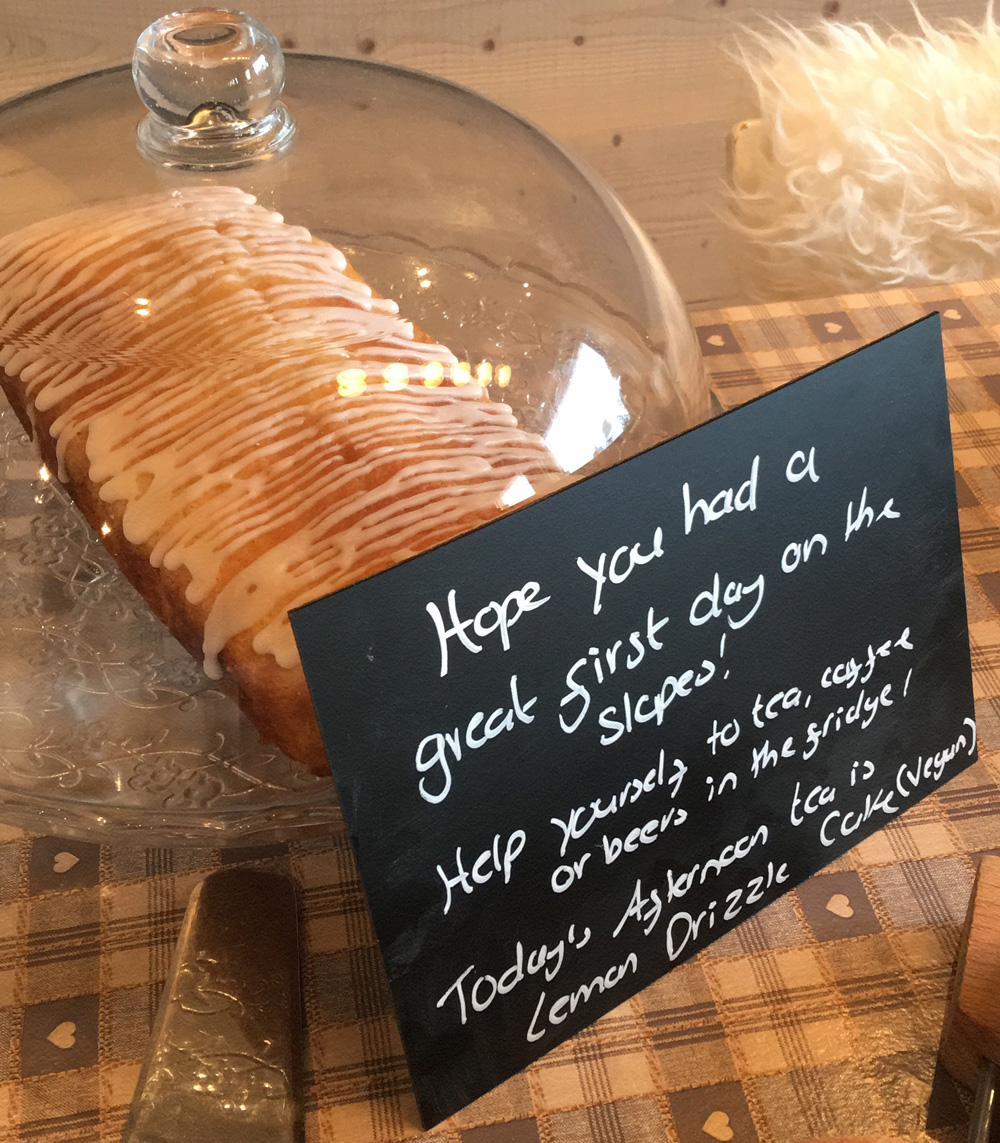 Hope you had a
great first day on the
slopes!
Help yourself to tea, coffee
or beers in the fridge!
Today's Afternoon tea is
Lemon Drizzle Cake (Vegan)